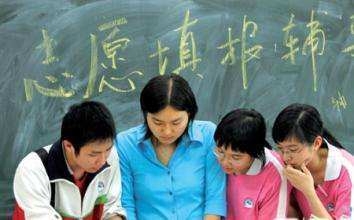 志愿填报辅